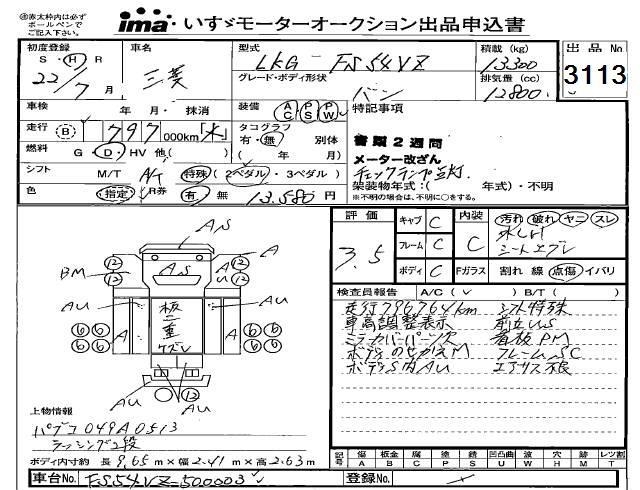 ㊟赤太枠内は必ず
ボールペンで
ご記入下さい。
ima いすゞモーターオークション出品申込書
初度登録 S・H R 22/7 月
車名 三菱
型式 LKG-FS54VZ
グレード・ボディ形状 バン
積載 (kg) 13300
排気量 (cc) 12800
出品 No 3113
車検 年 月・抹消
装備 AC PS PW
特記事項
走行 (B) 797 000km「水」
タコグラフ 有・無 別体 ( 年 月)
書類2週間
メーター改ざん
チェックランプ点灯.
燃料 G・D・HV 他( )
架装物年式:( 年式)・不明
※不明の場合は、不明に○をする。
シフト M/T A/T 特殊(2ペダル・3ペダル)
色 指定 R券 有 無 13.580 円
評価 3.5
キャブ C
フレーム C
ボディ C
内装 C
Fガラス
汚れ 破れ ヤニ スレ
割れ 線 点傷 イバリ
検査員報告 A/C ( ✓ ) B/T ( )
走行797.764km シフト特殊
車高調整表示 前立US
ミラーカバーパーツ欠 看板PM
ボディのせかえM フレームSC
ボディS内AU エアサス根
AS
12 A
BM AS AU 12
12
AU 板二重ケズレ AU
6 6 A A 6 6
6 6 6 6
AU 12 AU
上物情報
パブコ049A0513
ラッシング2段
ボディ内寸約 長9.65m×幅2.41m×高2.63m
記号 傷 板金 腐 塗 錆 凹凸曲 波 穴 補 レツ割
A B C P S U W H M T
車台No. FS54VZ-500003
登録No.